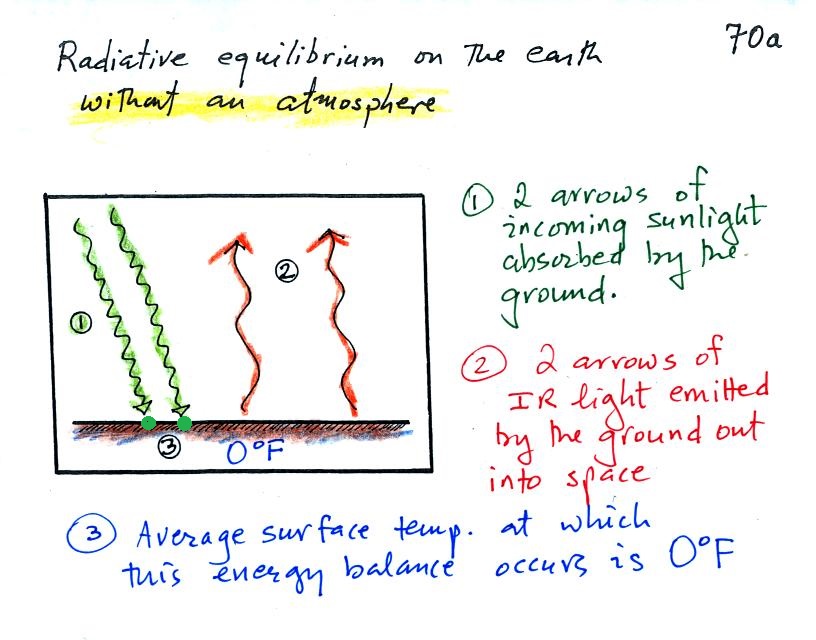 70a
Radiative equilibrium on the earth
without an atmosphere
① 2 arrows of
incoming sunlight
absorbed by the
ground.
② 2 arrows of
IR light emitted
by the ground out
into space
①
②
③
0°F
③ Average surface temp. at which
this energy balance occurs is 0°F